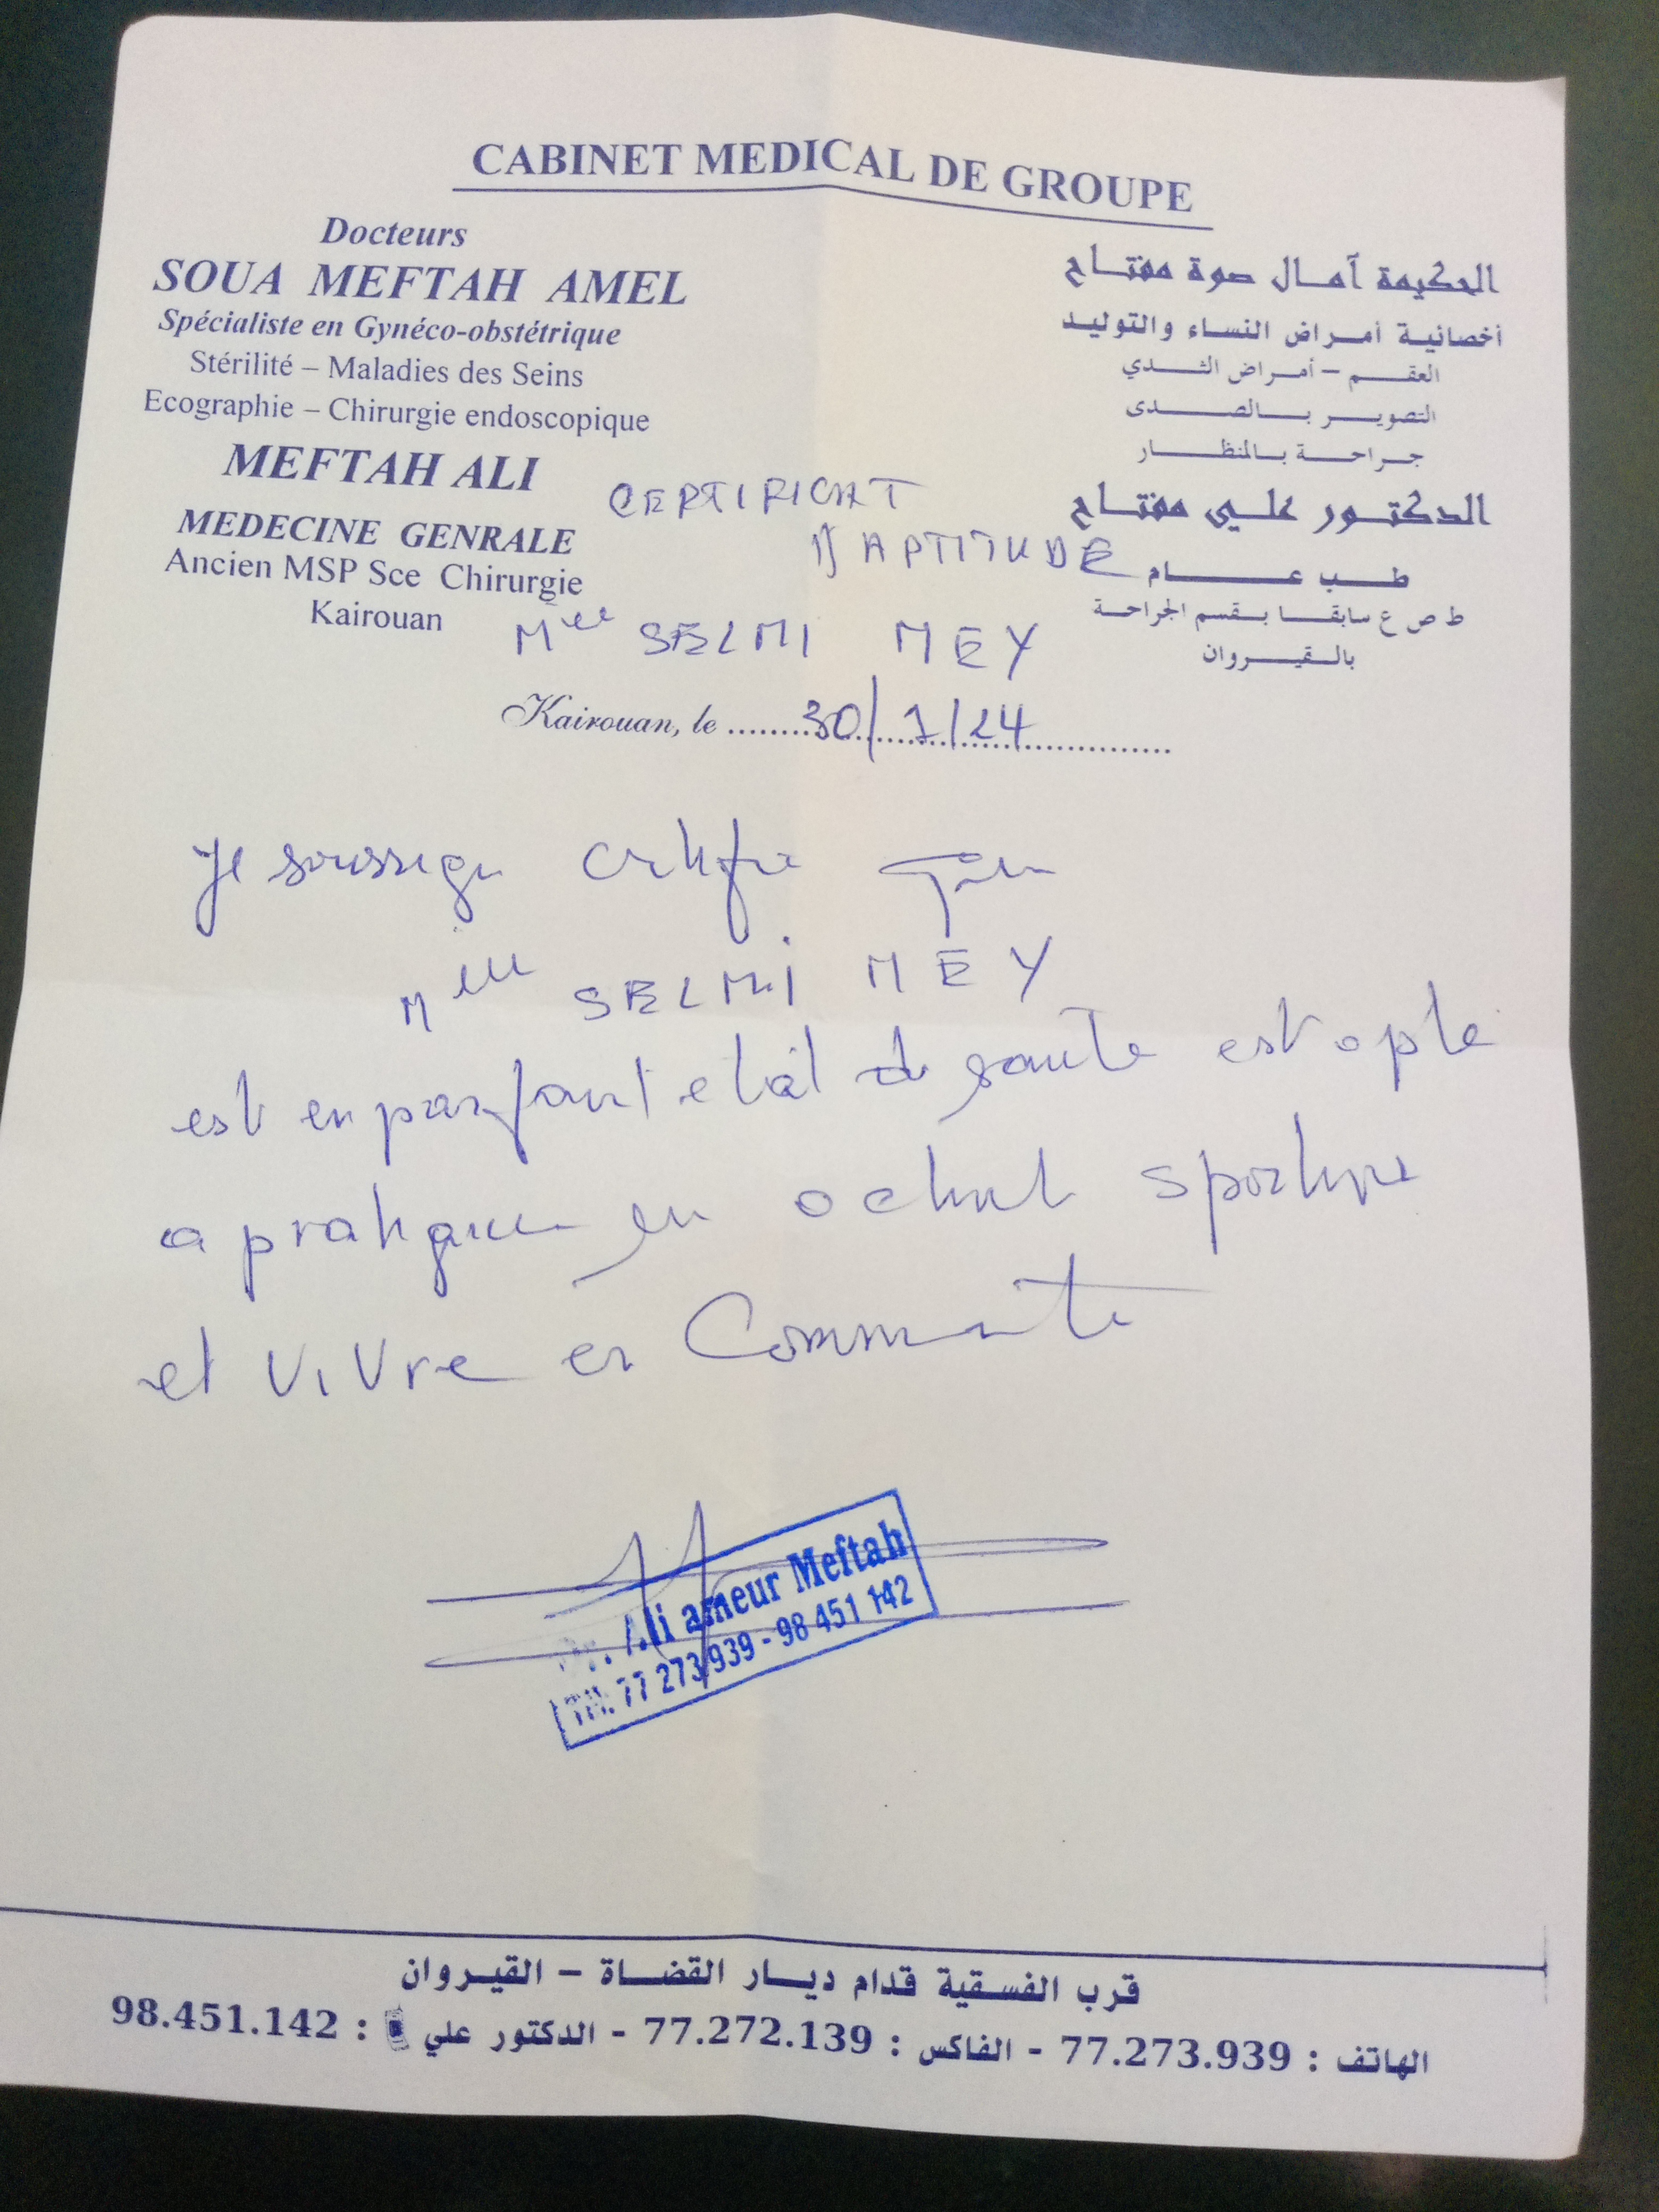 CABINET MEDICAL DE GROUPE
Docteurs
SOUA MEFTAH AMEL
Spécialiste en Gynéco-obstétrique
Stérilité – Maladies des Seins
Ecographie – Chirurgie endoscopique
MEFTAH ALI
MEDECINE GENRALE
Ancien MSP Sce Chirurgie
Kairouan
الحكيمة آمال صوة مفتاح
أخصائية أمراض النساء والتوليد
العقم – أمراض الثدي
التصوير بالصدى
جراحة بالمنظار
الدكتور علي مفتاح
طب عام
ط ص ع سابقا بقسم الجراحة
بالقيروان
CERTIFICAT
D'APTITUDE
Mlle SELMI MEY
Kairouan, le 30/7/24
Je soussigné certifie que
Mlle SELMI MEY
est en parfait etat de santé est apte
a pratiquer en activité sportive
et vivre en Communauté
Dr. Ali ameur Meftah
Tél. 77 273 939 - 98 451 142
قرب الفسقية قدام ديار القضاة – القيروان
الهاتف : 77.273.939 - الفاكس : 77.272.139 - الدكتور علي : 98.451.142